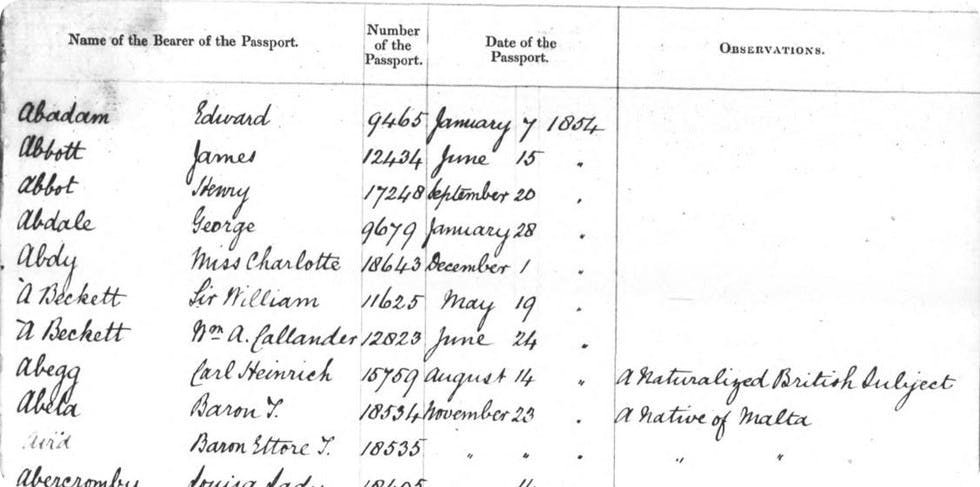 Name of the Bearer of the Passport. Number of the Passport. Date of the Passport. OBSERVATIONS.
Abadam Edward 9465 January 7 1854
Abbott James 12434 June 15 "
Abbot Henry 17248 September 20 "
Abdale George 9679 January 28 "
Abdy Miss Charlotte 18643 December 1 "
A'Beckett Sir William 11625 May 19 "
A'Beckett Wm A. Callander 12823 June 24 "
Abegg Carl Heinrich 15759 August 14 " A Naturalized British Subject
Abela Baron T. 18534 November 23 " A Native of Malta
Baron Ettore T. 18535 " " " " "
Abercromby Louisa Lady